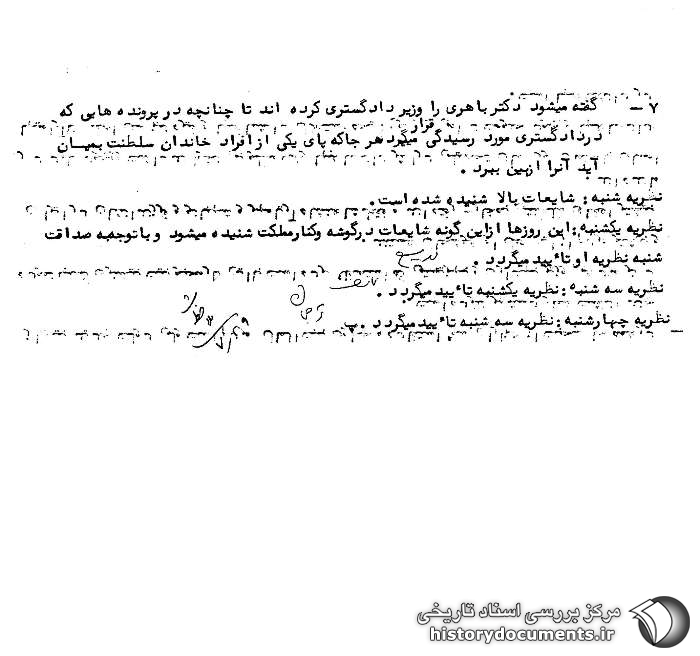 ۷ - گفته میشود دکتر باهری را وزیر دادگستری کرده اند تا چنانچه در پرونده هایی که
در دادگستری مورد رسیدگی قرار میگیرد هر جا که پای یکی از افراد خاندان سلطنت بمیان
آید آنرا از بین ببرد .
نظریه شنبه : شایعات بالا شنیده شده است .
نظریه یکشنبه : این روزها از این گونه شایعات در گوشه و کنار مملکت شنیده میشود و با توجه به صداقت
شنبه نظریه او تائید میگردد .
نظریه سه شنبه : نظریه یکشنبه تائید میگردد .
نظریه چهارشنبه : نظریه سه شنبه تائید میگردد .
مرکز بررسی اسناد تاریخی
historydocuments.ir